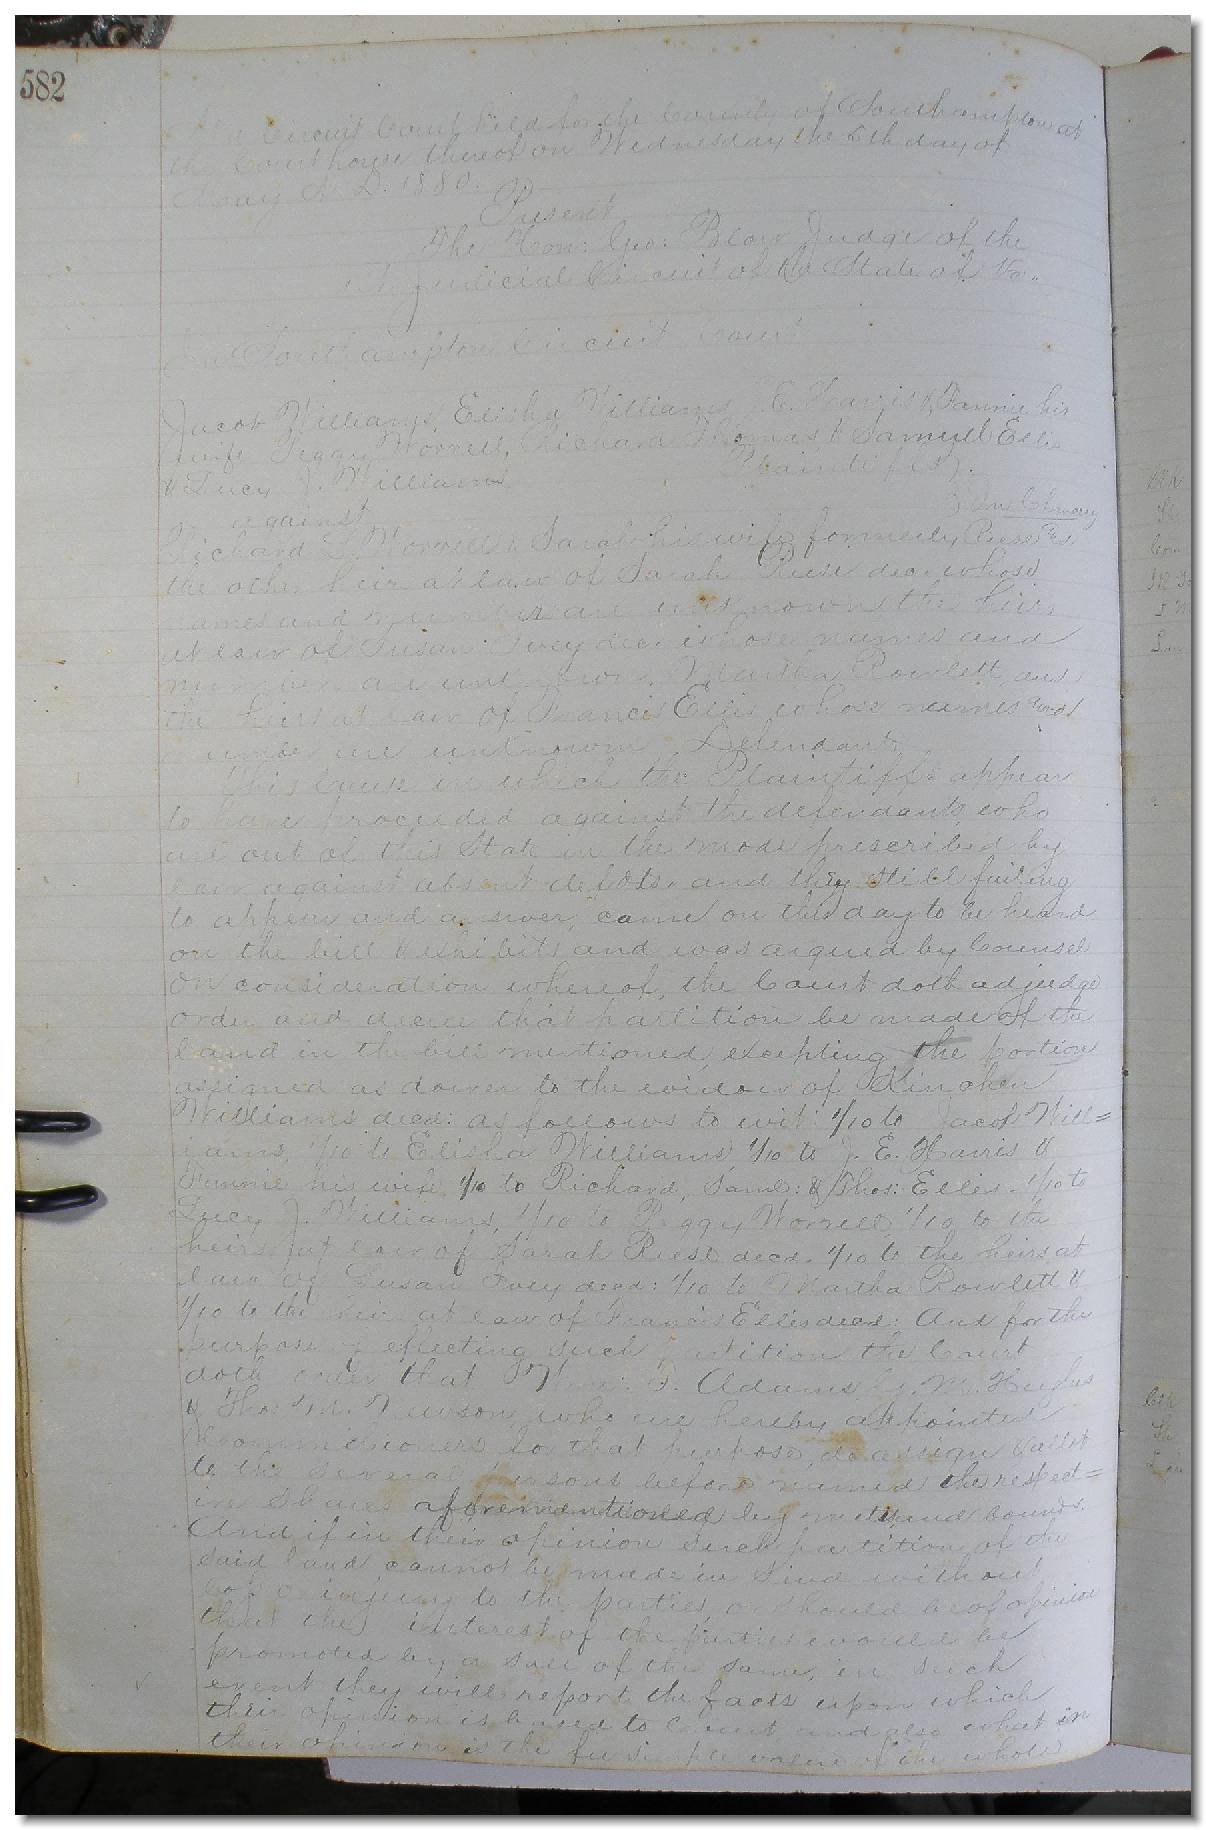 582
Circuit Court held for the County of Southampton at
the Courthouse thereof on Wednesday the 5th day of
May A. D. 1880.
Present
The Hon: Geo: Blow Judge of the
Judicial Circuit of the State of Va.
In Southampton Circuit Court
Jacob Williams, Elisha Williams, J. E. Harris & Fannie his
wife Peggy Worrell, Richard Thomas & Samuel Ellis
& Lucy J. Williams Plaintiffs
against In Chancery
Richard Worrell & Sarah his wife formerly Reese and
the other heirs at law of Sarah Reese dec. whose
names and number are unknown the heirs
at law of Susan Ivey dec. whose names and
number are unknown, Martha Rowlett, and
the heirs at law of Francis Ellis whose names and
number are unknown, Defendants
This Cause in which the Plaintiffs appear
to have proceeded against the defendants who
are out of this State in the mode prescribed by
law against absent defdts. and they still failing
to appear and answer, came on this day to be heard
on the bill & exhibits and was argued by Counsel
on consideration whereof, the Court doth adjudge
order and decree that partition be made of the
land in the bill mentioned, excepting the portion
assigned as dower to the widow of Kinchen
Williams decd. as follows to wit: 1/10 to Jacob Will=
iams, 1/10 to Elisha Williams, 1/10 to J. E. Harris &
Fannie his wife, 1/10 to Richard, Saml: & Thos: Ellis. 1/10 to
Lucy J. Williams, 1/10 to Peggy Worrell, 1/10 to the
heirs at law of Sarah Reese decd. 1/10 to the heirs at
law of Susan Ivey decd: 1/10 to Martha Rowlett &
1/10 to the heirs at law of Francis Ellis decd: And for the
purpose of effecting such partition the Court
doth order that Adams, J. M. Hughes
& Thos. Newsom, who are hereby appointed
Commissioners for that purpose, do assign & allot
to the several persons before named the respect=
ive shares aforementioned by metes and bounds.
And if in their opinion such partition of the
said land cannot be made in kind without
loss or injury to the parties, or should be of opinion
that the interest of the parties would be
promoted by a sale of the same, in such
event they will report the facts upon which
their opinion is based to Court, and also what in
their opinion is the fee simple value of the whole